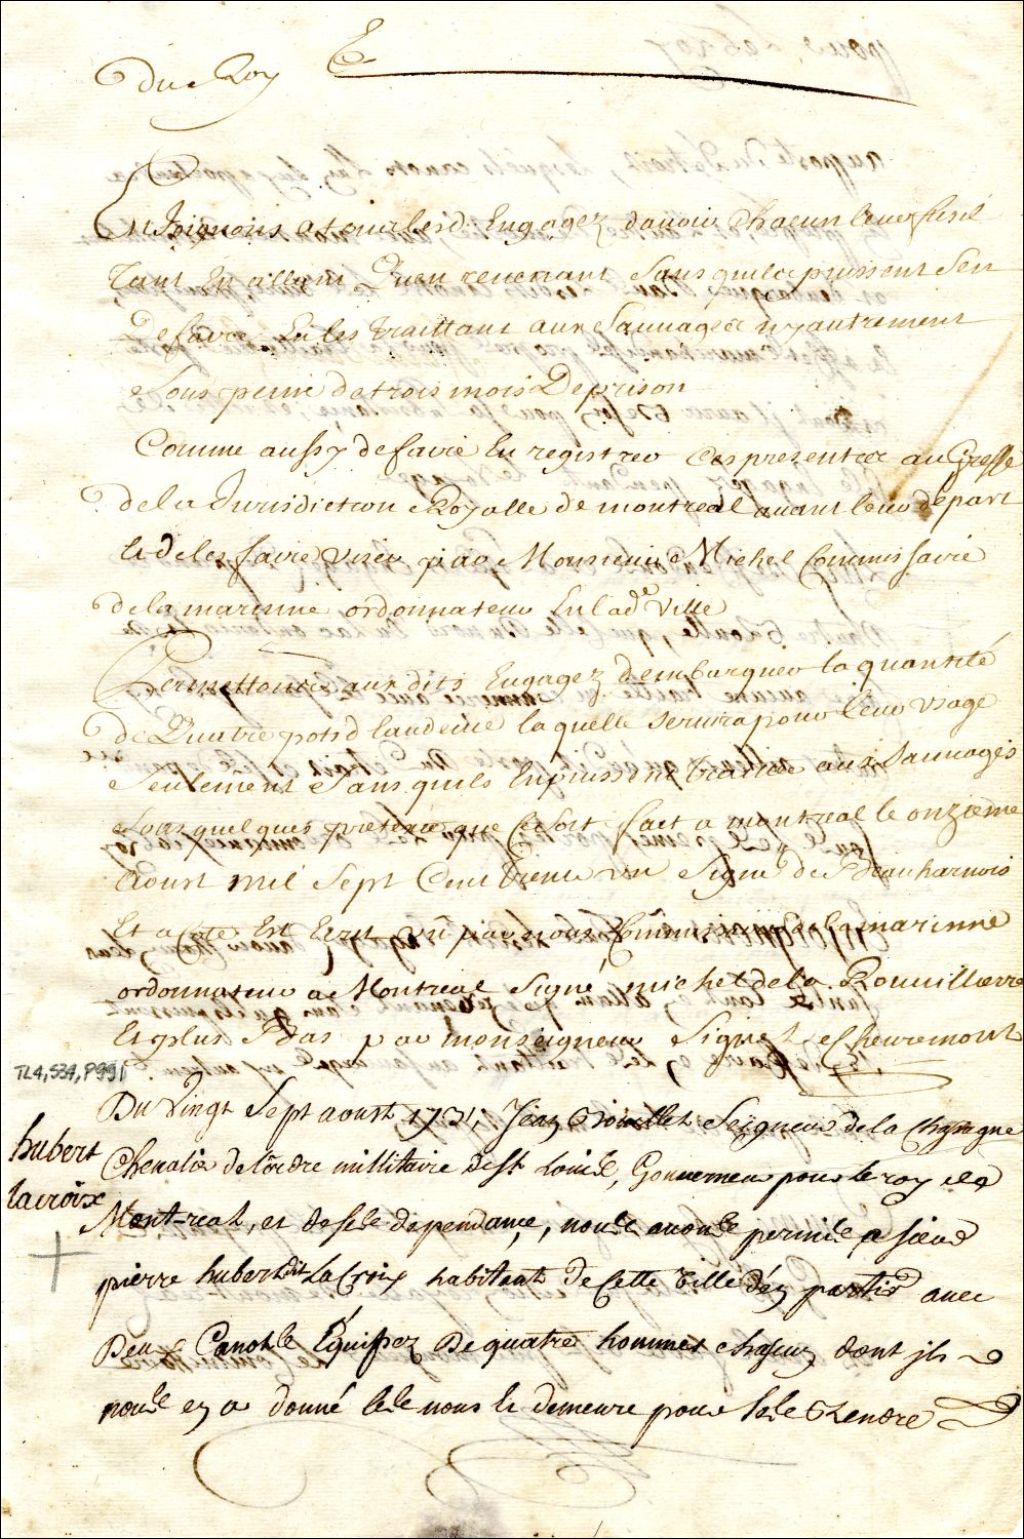 du Roy
Enjoignons a tous lesd. Engagez davoir Chacun leur fusil
Tant En allant Qu'en revenant Sans quils puissent Sen
Defaire En les Traittant aux Sauvages ny autrement
Sous peine de trois mois De prison
Comme aussy de faire En registrer Ces presentes au Greffe
de la Jurisdiction Royalle de montreal avant leur depart
Et de les faire viser par Monsieur Michel Commissaire
de la marinne ordonnateur En lad.e Ville
Permettons aux dits Engagez dembarquer la quantité
de Quatre pots d'eaudevie laquelle servira pour leur usage
Seulement Sans quils En puissent traitter aux Sauvages
Sous quelques pretexte que ce soit fait a montreal le onzieme
aoust mil Sept Cent Trente un Signé de Beauharnois
Et a côté Est Ecrit vû par nous Commissaire de la marinne
ordonnateur a Montreal Signé, michel de la Rouvilliere
Et plus Bas par monseigneur Signé, Chevremont
TL4, S34, P991
Du Vingt Sept aoust 1731, Jean Bouillet Seigneur de la Chassagne
hubert
Chevalier de lordre millitaire de St Louis, Gouverneur pour le roy de
lacroix
Mont-real, et de ses dependance, nous avons permis a sieur
pierre hubert dit LaCroix habitant de Cette Ville d'en partir avec
Deux Canots Equipez De quatre hommes chasun dont il
nous en a donné le nom et demeure pour ses Rendre